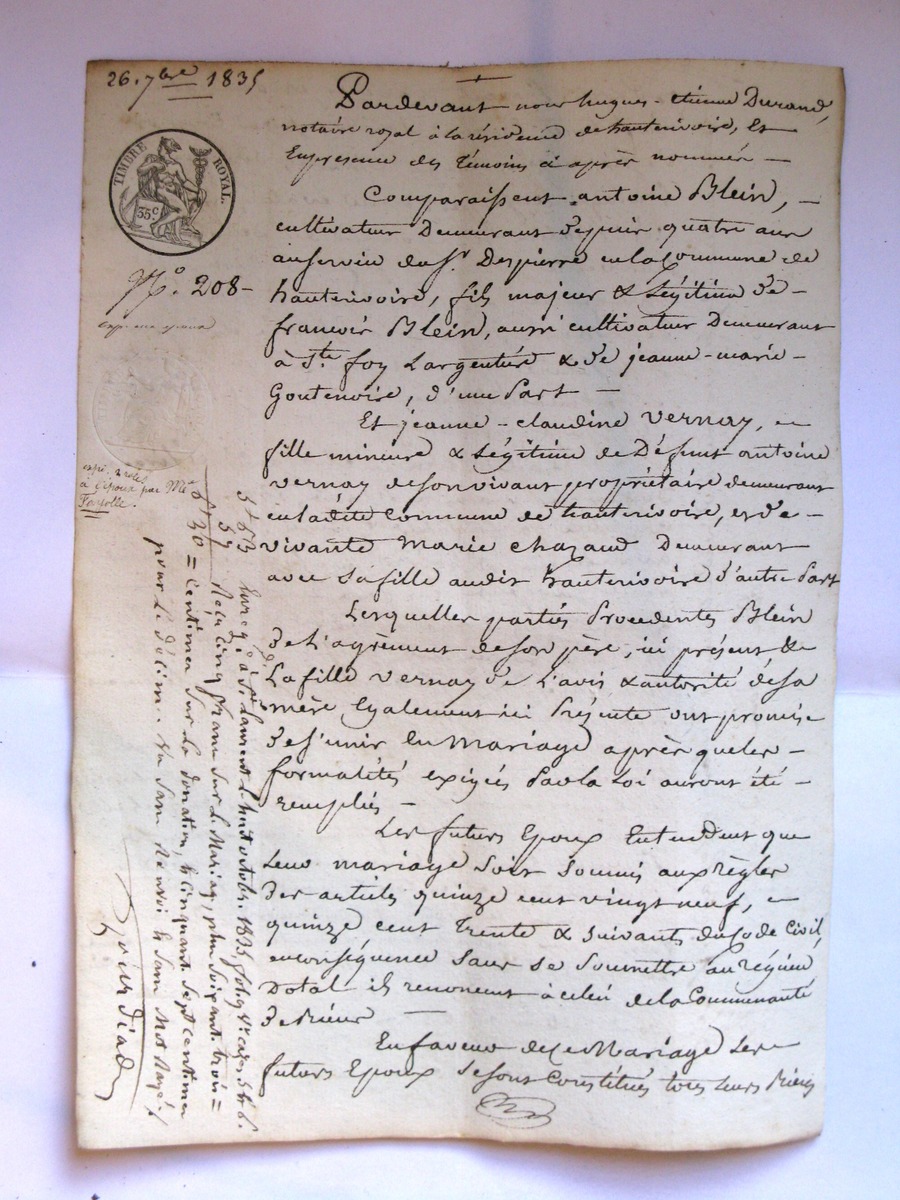 26. 7bre 1835
TIMBRE ROYAL.
35c
N° 208-
expé. 2 rôles
à l'époux par Me
Fayolle.
Pardevant nous hugues-etienne Durand,
notaire royal à la résidence de hauterivoire, Et
En presence des Témoins ci après nommés -
Comparaissent antoine Blein, -
cultivateur Demeurant depuis quatre ans
au service du Sr. Despierre en la Commune de
hauterivoire, fils majeur & Légitime de -
francois Blein, aussi cultivateur Demeurant
à Ste. foy Largentière & de jeanne-marie -
Goutenoire, d'une Part -
Et jeanne-claudine Vernay, -
fille mineure & Légitime de Défunt antoine
vernay de son vivant propriétaire demeurant
en ladite Commune de hauterivoire, et de -
vivante Marie Chazaud Demeurant
avec sa fille audit hauterivoire d'autre Part
Lesquelles parties Procedentes Blein
De L'agrèment de son père, ici présent, &
La fille vernay de L'avis & autorité de sa
mère Egalement ici Présente ont promis
De s'unir En Mariage après que les -
formalités exigées Par la Loi auront été -
remplies -
Les futurs Epoux Entendent que
Leur mariage Soit Soumis aux règles
Des articles quinze cent vingt neuf, -
quinze cent Trente & suivants du Code Civil,
en conséquence Sans se Soumettre au régime
Dotal ils renoncent à celui de la Communauté
De biens -
En faveur de ce Mariage Les -
futurs Epoux Se sont Constitués tous leurs Biens
5f 63
57
6f 20
Enregé. à St Laurent le huit octobre 1835, folio
Reçu cinq francs Sur Le Mariage, plus Soixante trois =
= centimes Sur La donation, & cinquante Sept centimes
pour Le Décime. Vu Sans Renvoi & Sans Mot Rayé./.